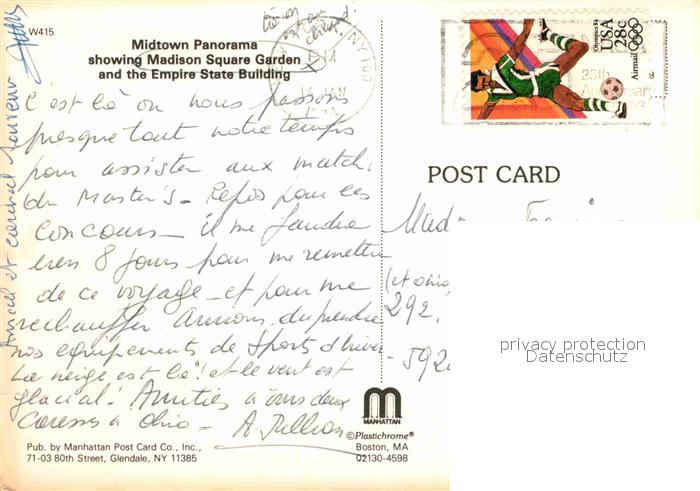 W415
Midtown Panorama
showing Madison Square Garden
and the Empire State Building
AM
14 JAN
NY 100
25th
Anniversary
Olympics 84
USA
28c
Airmail
POST CARD
C'est là où nous passons
presque tout notre temps
pour assister aux match.
du Master's - Repos pour les
concours - il me faudra
bien 8 jours pour me remettre
de ce voyage - et pour me
rechauffer. Aurions du prendre
nos equipements de Sports d'hiver
La neige est là! et le vent est
glacial. Amitiés à vous deux
Caresses à Ohio - A. Jullian
Amical et cordial souvenir
Mad
(et Ohio)
292,
- 592
privacy protection
Datenschutz
MANHATTAN
©Plastichrome®
Boston, MA
02130-4598
Pub. by Manhattan Post Card Co., Inc.,
71-03 80th Street, Glendale, NY 11385